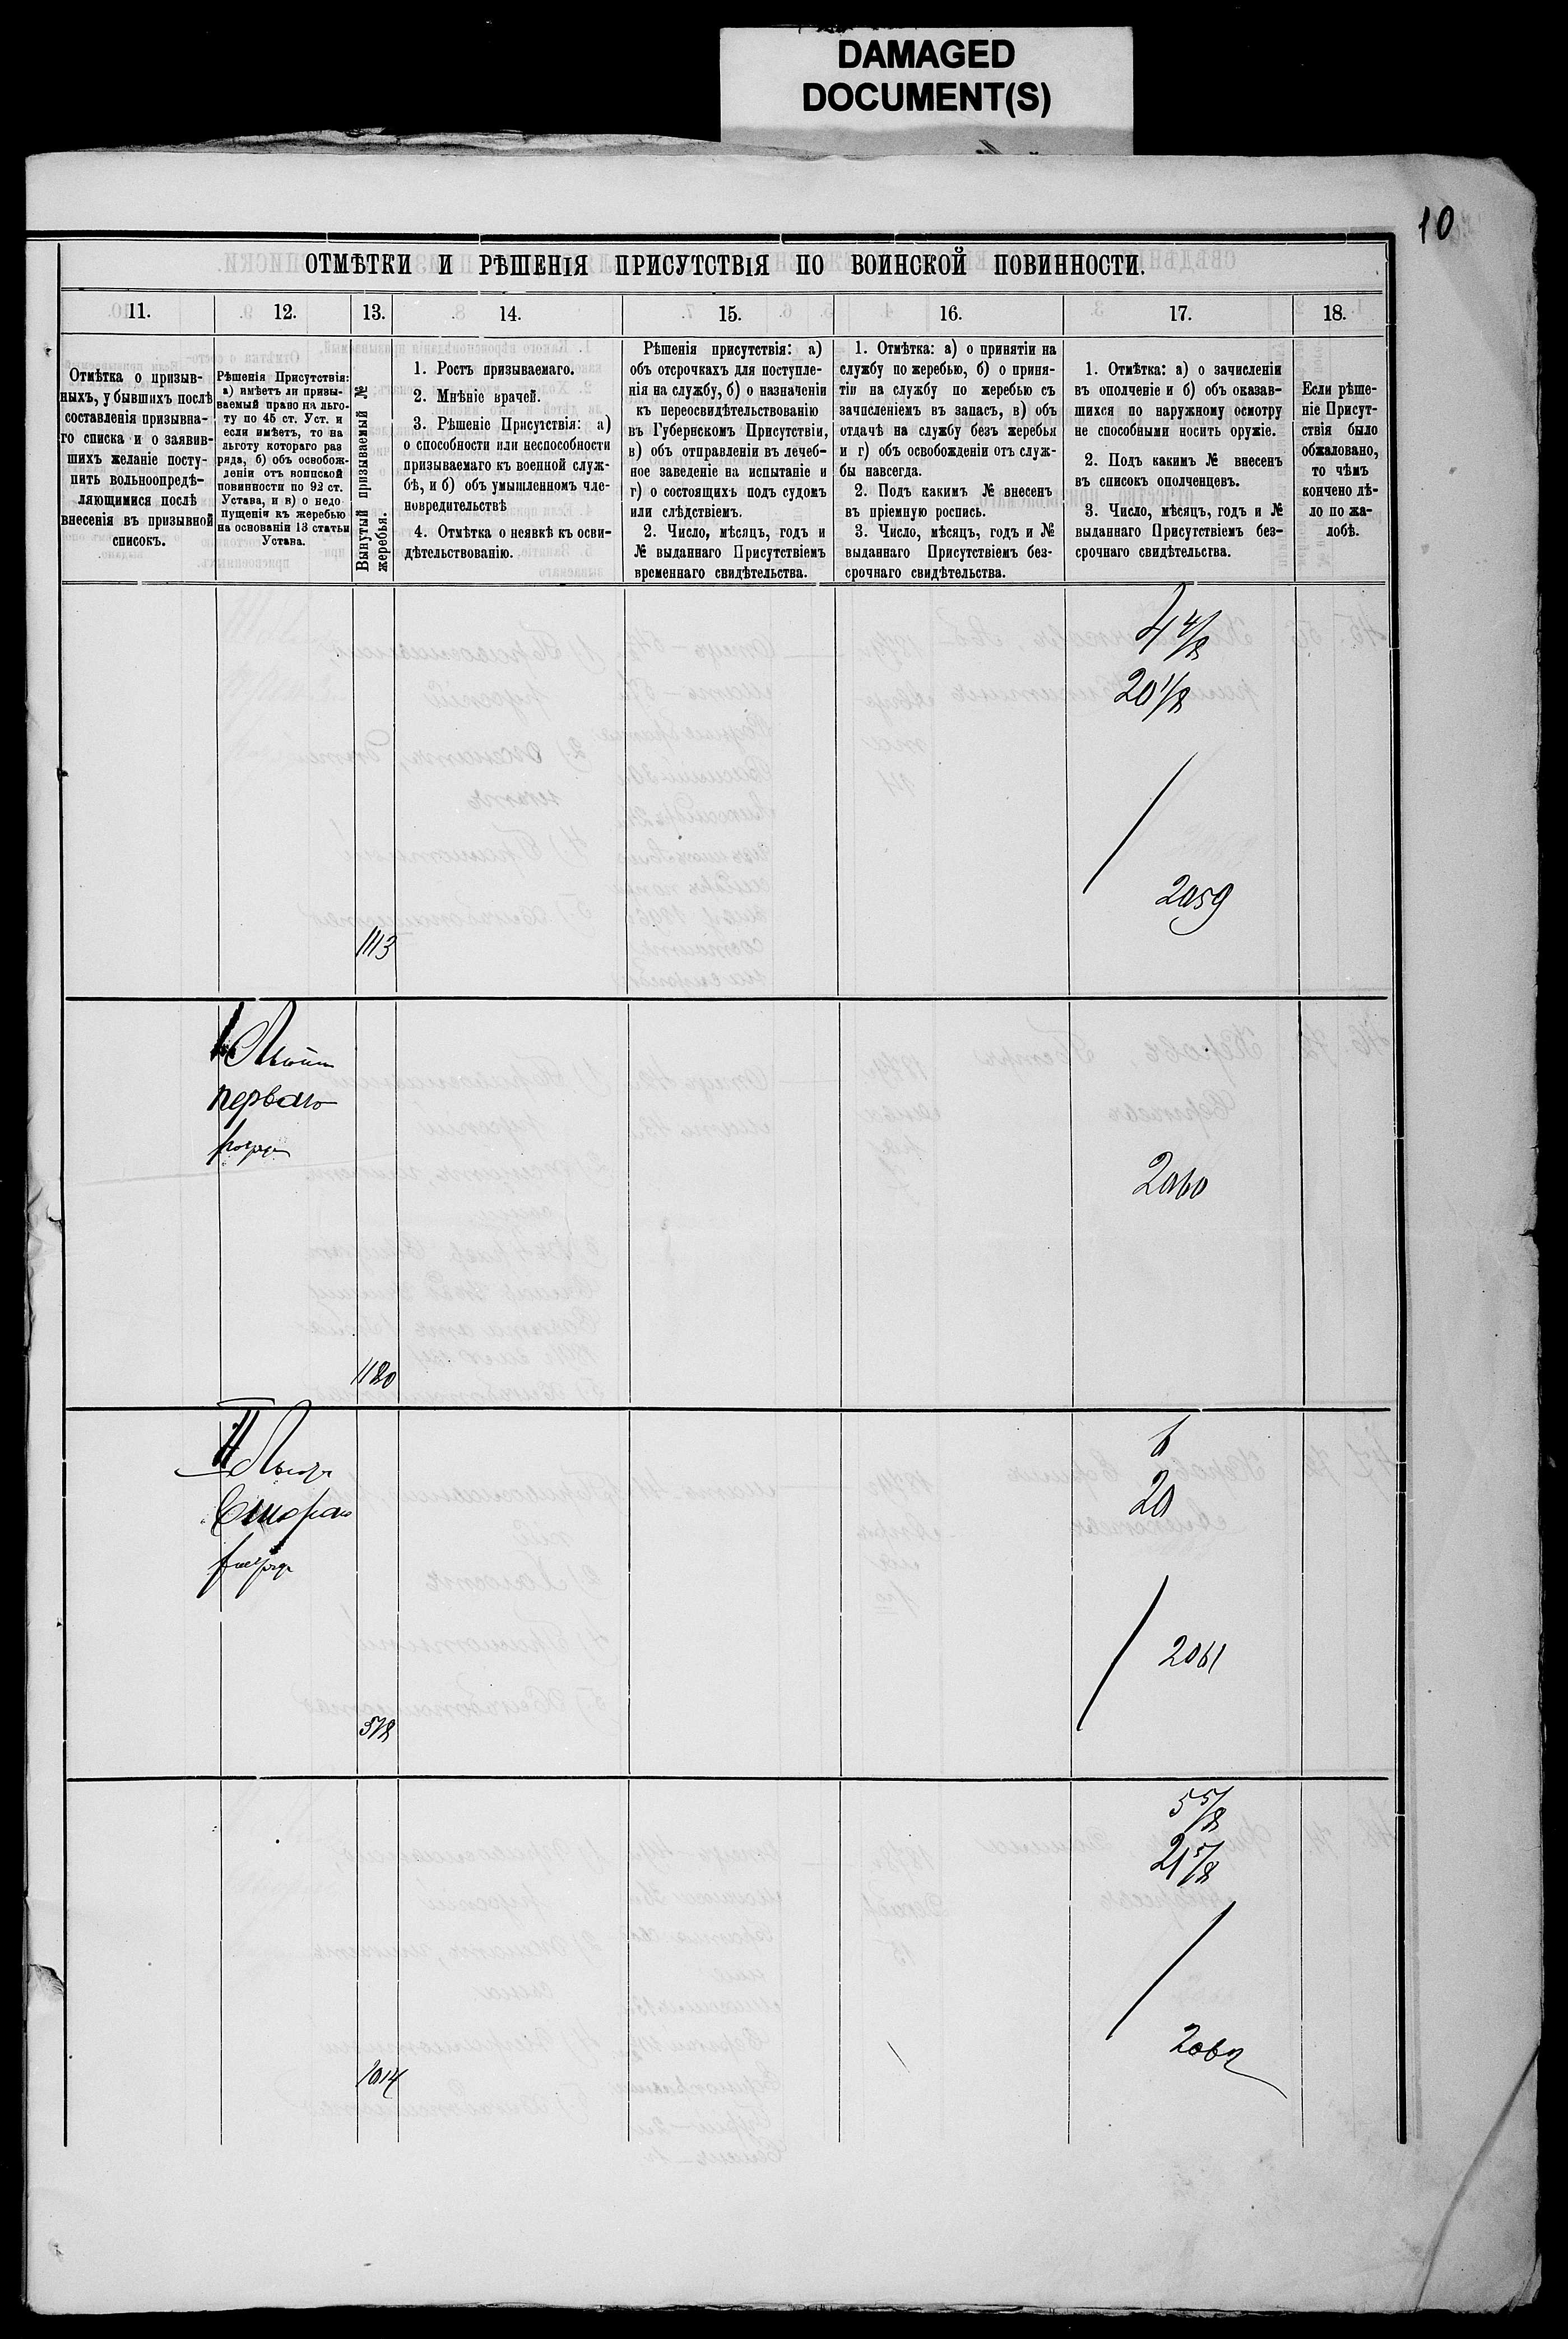 DAMAGED
DOCUMENT(S)
10
ОТМѢТКИ И РѢШЕНІЯ ПРИСУТСТВІЯ ПО ВОИНСКОЙ ПОВИННОСТИ.
11. 12. 13. 14. 15. 16. 17. 18.
Отмѣтка о призыв-
ныхъ, у бывшихъ послѣ
составленія призывна-
го списка и о заявив-
шихъ желаніе посту-
пить вольноопредѣ-
ляющимися послѣ
внесенія въ призывной
списокъ.
Рѣшенія Присутствія:
а) имѣетъ ли призы-
ваемый право на льго-
ту по 45 ст. Уст. и
если имѣетъ, то на
льготу котораго раз
ряда, б) объ освобож-
деніи отъ воинской
повинности по 92 ст.
Устава, и в) о недо
пущеніи къ жеребью
на основаніи 13 статьи
Устава.
Вынутый призываемый №
жеребья.
1. Ростъ призываемаго.
2. Мнѣніе врачей.
3. Рѣшеніе Присутствія: а)
о способности или неспособности
призываемаго къ военной служ-
бѣ, и б) объ умышленномъ чле-
новредительствѣ
4. Отмѣтка о неявкѣ къ осви-
дѣтельствованію.
Рѣшенія присутствія: а)
объ отсрочкахъ для поступле-
нія на службу, б) о назначеніи
къ переосвидѣтельствованію
въ Губернскомъ Присутствіи,
в) объ отправленіи въ лечеб-
ное заведеніе на испытаніе и
г) о состоящихъ подъ судомъ
или слѣдствіемъ.
2. Число, мѣсяцъ, годъ и
№ выданнаго Присутствіемъ
временнаго свидѣтельства.
1. Отмѣтка: а) о принятіи на
службу по жеребью, б) о приня-
тіи на службу по жеребью съ
зачисленіемъ въ запасъ, в) объ
отдачѣ на службу безъ жеребья
и г) объ освобожденіи отъ служ-
бы навсегда.
2. Подъ какимъ № внесенъ
въ пріемную роспись.
3. Число, мѣсяцъ, годъ и №
выданнаго Присутствіемъ без-
срочнаго свидѣтельства.
1. Отмѣтка: а) о зачисленіи
въ ополченіе и б) объ оказав-
шихся по наружному осмотру
не способными носить оружіе.
2. Подъ какимъ № внесенъ
въ списокъ ополченцевъ.
3. Число, мѣсяцъ, годъ и №
выданнаго Присутствіемъ без-
срочнаго свидѣтельства.
Если рѣше-
ніе Присут-
ствія было
обжаловано,
то чѣмъ
кончено дѣ-
ло по жа-
лобѣ.
4 4/8
20 1/8
2059
1113
перваго
2060
1180
II
6
20
2061
578
5 5/8
21 5/8
2062
1014